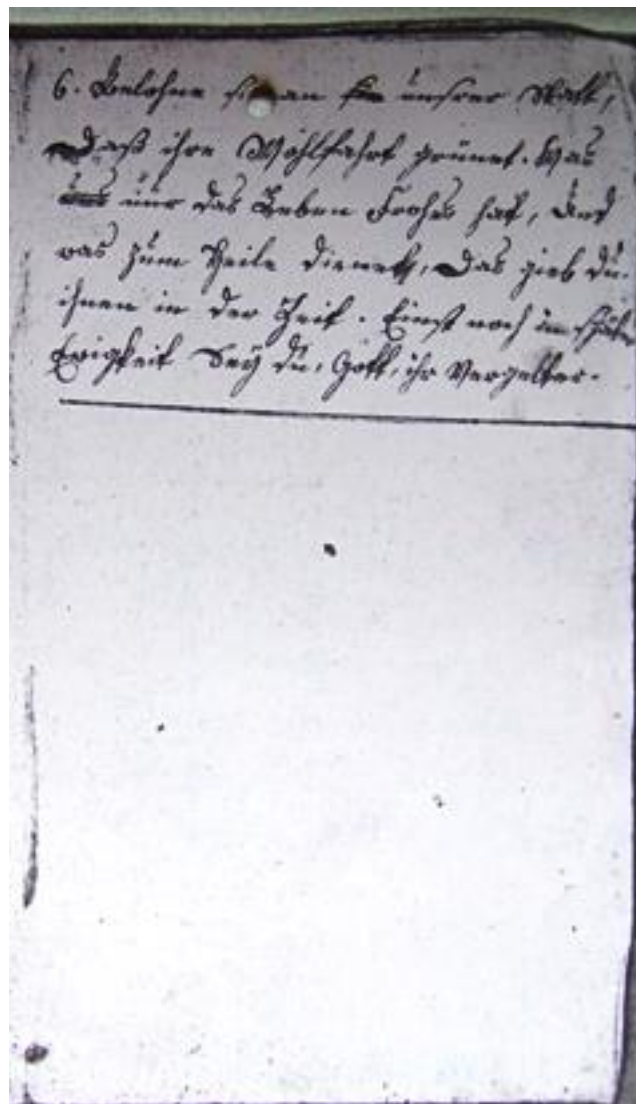 6. Belohne sie an unsrer Statt,
Daß ihre Wohlfahrt grünet. Was
nur das Leben Frohes hat, Und
was zum Heile dienet, Das gieb du
ihnen in der Zeit. Einst noch in
Ewigkeit Sey du, Gott, ihr Vergelter.